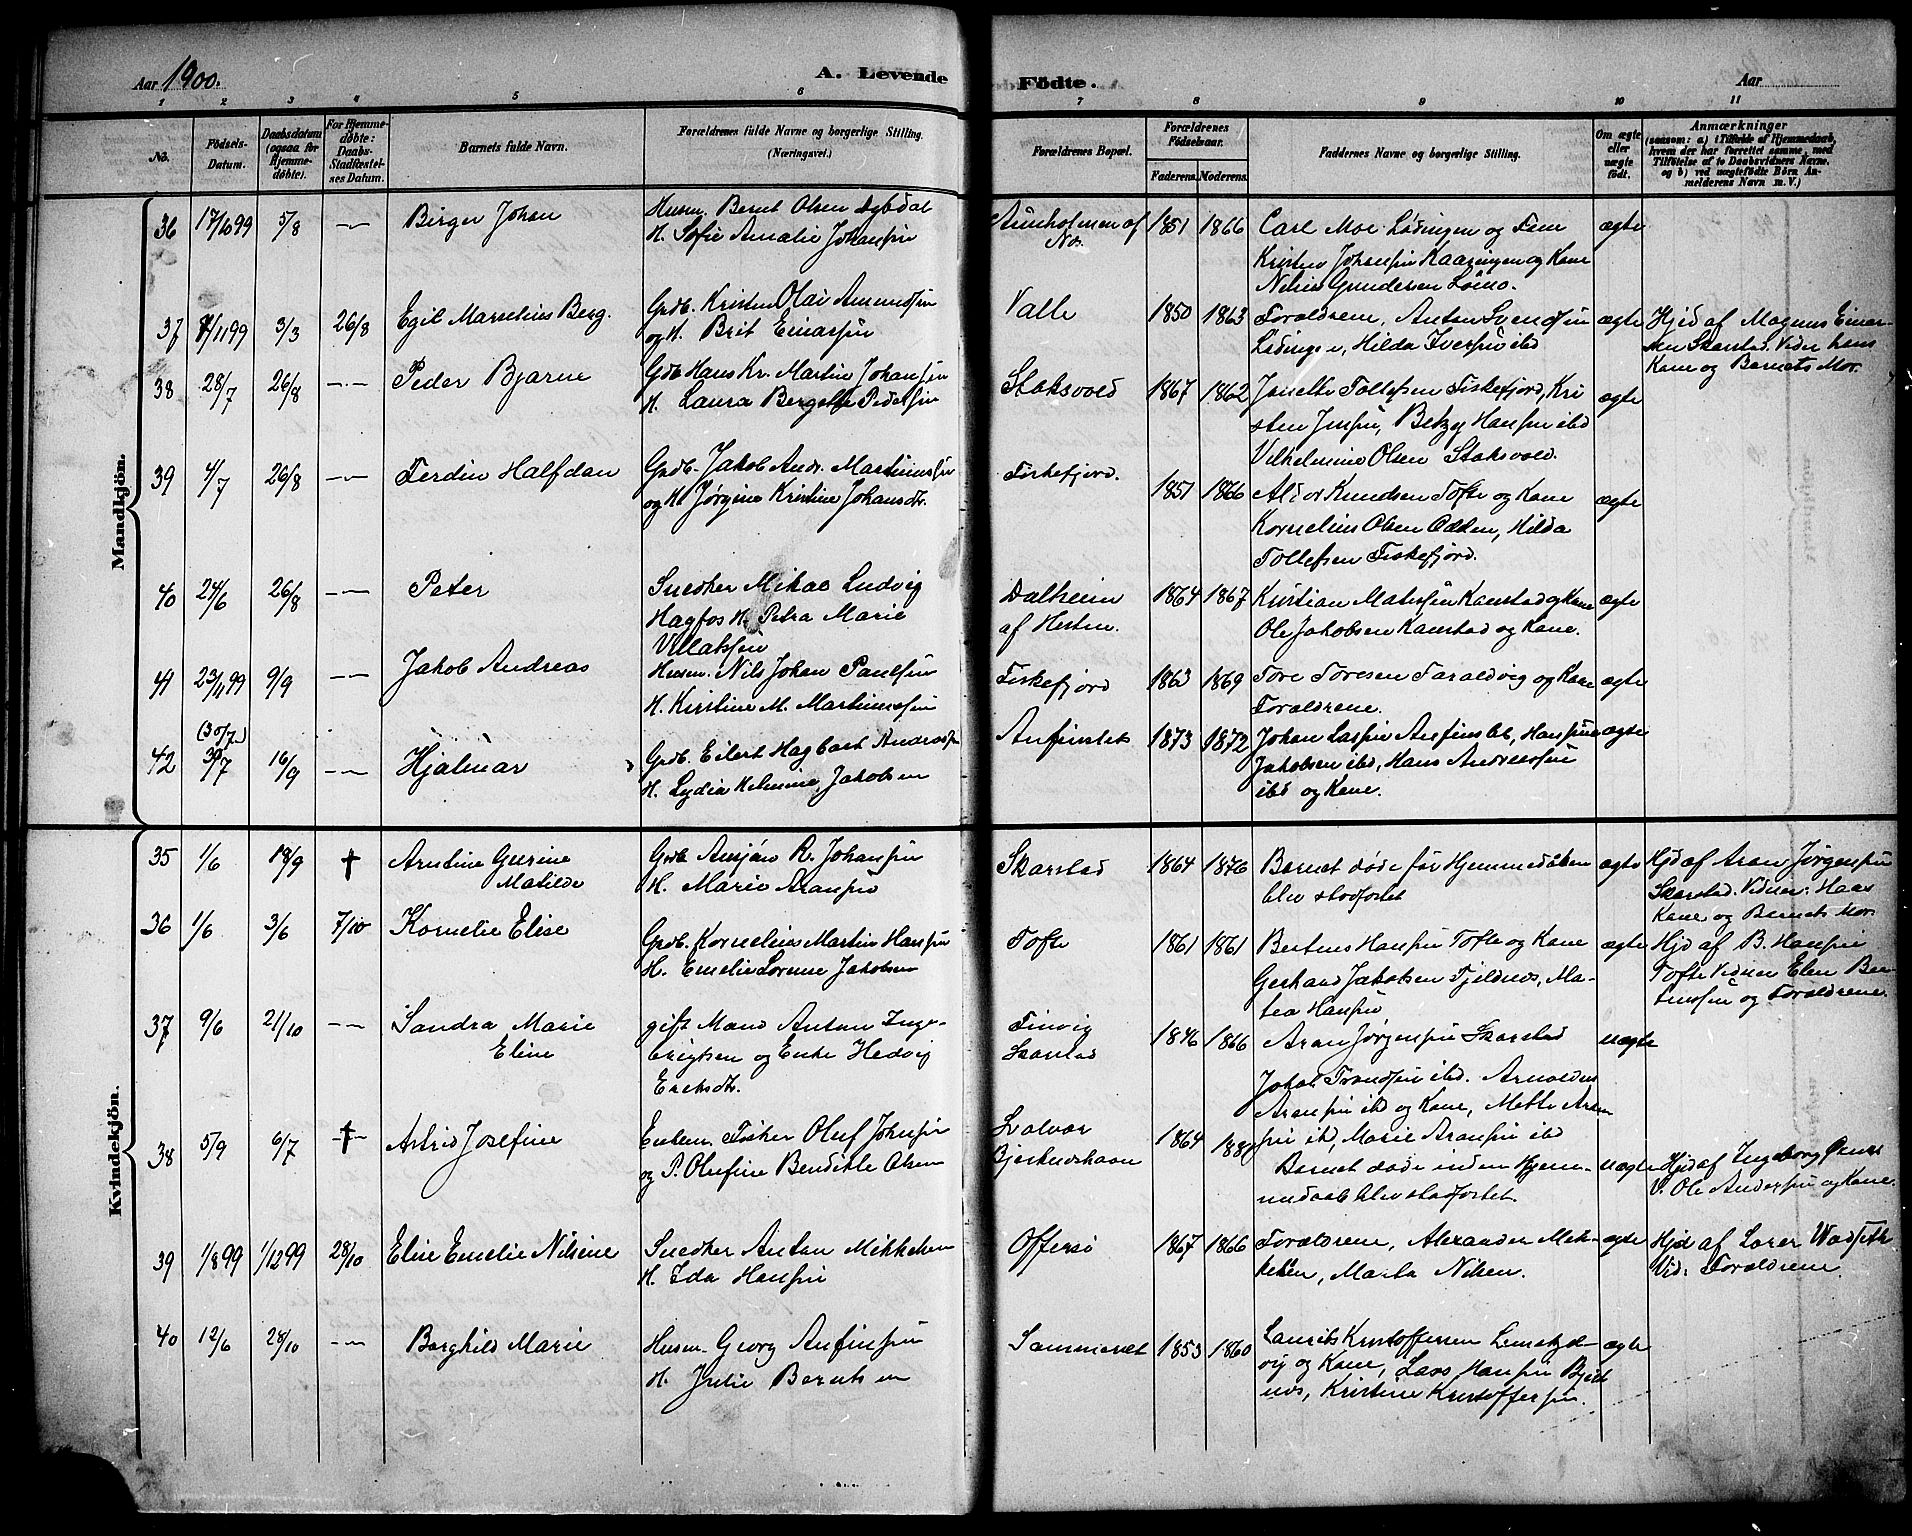 Aar 1900.
A. Levende
Födte.
Aar
1 2 3 4 5 6 7 8 9 10 11
No.
Födsels-
Datum.
Daabsdatum
(ogsaa for
Hjemme-
døbte).
For Hjemme-
døbte:
Daabs-
Stadfæstel-
ses Datum.
Barnets fulde Navn.
Forældrenes fulde Navne og borgerlige Stilling.
(Næringsvei.)
Forældrenes Bopæl.
Forældrenes
Födselsaar.
Faderens. Moderens.
Faddernes Navne og borgerlige Stilling.
Om ægte
eller
uægte
født.
Anmærkninger
(saasom: a) i Tilfælde af Hjemmedaab,
hvem der har forrettet samme, med
Tilföielse af to Daabsvidners Navne.
og b) ved uægtefödte Börn An-
melderens Navn m. V.)
Mandkjön.
36 17/10 99 5/8 -"- Birger Johan
Husm. Bernt Olsen Dybdal
H. Sofie Amalie Johansen
af
No.
1851 1866
Carl Moe Lødingen og
Kristen Johansen Kaaringen og Kone
Gundersen
ægte
37 1/11 99 3/3 26/8 Egil Marselius Berg.
Grdb. Kristen Olai Amundsen
og H. Brit Einarsen
Valle
1850 1863
Forældrene, Anton Svendsen
Lødingen, Hilda Iversen ibd
ægte
Hjd af Magnus Einar-
sen Skarstad. Vidner hans
Kone og Barnets Mor.
38 28/7 26/8 -"- Peder Bjarne
Gdb Hans Kr. Martin Johansen
H. Laura Bergette Pedersen
Stoksvold
1867 1862
Tollefsen Fiskefjord, Kri
sten Jensen, Betzy Hansen ibd
Vilhelmine Olsen Stoksvold.
ægte
39 4/7 26/8 -"- Ferdin Halfdan
Grdb. Jakob Andr. Martinussen
og H. Jørgine Kristine Johansdt.
Fiskefjord.
1851 1866
Knudsen Tofte og Kone
Kornelius Olsen Odden, Hilda
Tollefsen Fiskefjord.
ægte
40 24/6 26/8 -"- Peter
Snedker Mikal Ludvig
Hagfos H. Petra Marie
Dalheim
af Hesten.
1864 1867
Kristian Kanstad og Kone
Ole Jakobsen Kanstad og Kone.
ægte
41 23/11 99 9/9 -"- Jakob Andreas
Husm. Nils Johan Paulsen
H. Kirstine M. Martinussen
Fiskefjord
1863 1869
Tore Toresen Taraldvig og Kone
Forældrene.
ægte
42 (30/7) 30/7 16/9 -"- Hjalmar
Grdb. Eilert Hagbart Andreas
H. Lydia Jakobsen
Anfinslet
1873 1872
Johan Anfinslet, Hansine
Jakobsen ibd, Hans Andreassen
ibd og Kone.
ægte
Kvindekjön.
35 1/6 18/9 † Arntine Gurine
Matilde
Grdb. Ansjøn R. Johansen
H. Marie Aronsen
Skarstad
1864 1876
Barnet døde før Hjemmedåben
blev stadfæstet
ægte
Hjd af Aron Jørgensen
Skarstad. Vidner: Hans
Kone og Barnets Mor.
36 1/6 3/6 7/10 Kornelie Elise
Grdb. Kornelius Martin Hansen
H. Emelie Lorense Jakobsen
Tofte
1861 1861
Berteus Hansen Tofte og Kone
Gerhard Jakobsen Fjeldnes, Ma-
tea Hansen
ægte
Hjd af B. Hansen
Tofte Vidner Elen Ber
tensen og Forældrene.
37 9/6 21/10 -"- Sandra Marie
Eline
gift Mand Anton Inge-
brigtsen og Enke Hedvig
Eriksdt.
Finvig
Skarstad
1846 1866
Aron Jørgensen Skarstad
Johan ibd. Arnoldus
Aronsen ibd og Kone, Mette Aron
sen ibd, Marie Aronsen ibd
uægte
38 5/9 6/7 † Astrid Josefine
Enkem. Fisker Oluf Johnsen
og P. Olufine Bendikte Olsen
1864
Barnet døde inden Hjem-
medaab blev stadfæstet.
uægte
Hjd af Ingeborg
V. Ole Andersen og Kone.
39 1/8 99 1/12 99 28/10 Elise Emelie Nilsine
Snedker Anton Mikkelsen
H. Ida Hansen
Offersø
1867 1866
Forældrene, Alexander Mik-
kelsen, Marta Nilsen.
ægte
Hjd af
Vid: Forældrene
40 12/6 28/10 -"- Borghild Marie
Husm. Georg Anfinsen
H. Julie Berntsen
Sommerset
1853 1860
Laurits Kristoffersen
vig og Kone, Lars Hansen
nes, Kristine Kristoffersen.
ægte